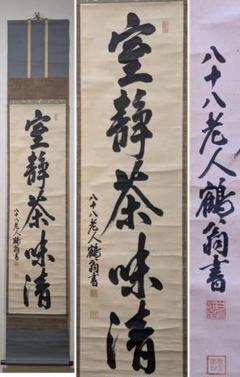 室静茶味清
八十八老人鶴翁書
室静茶味清
八十八老人鶴翁書
八十八老人鶴翁書